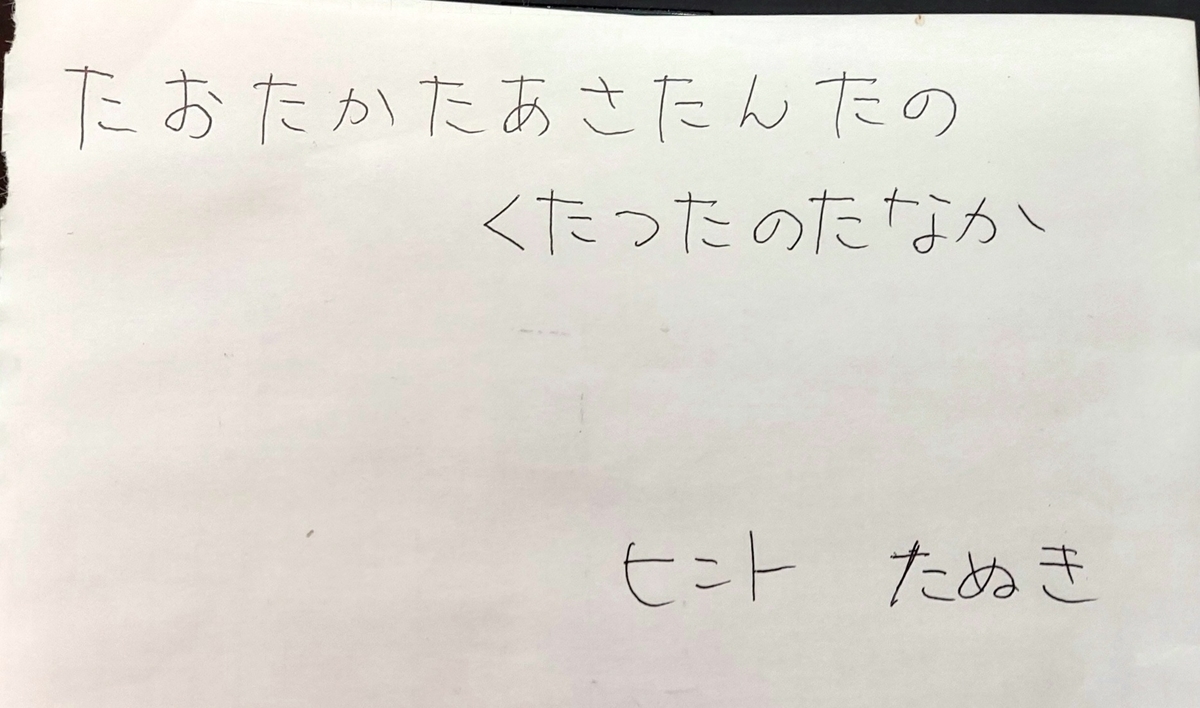 たおたかたあさたんたの
くたつたのたなか
ヒント たぬき